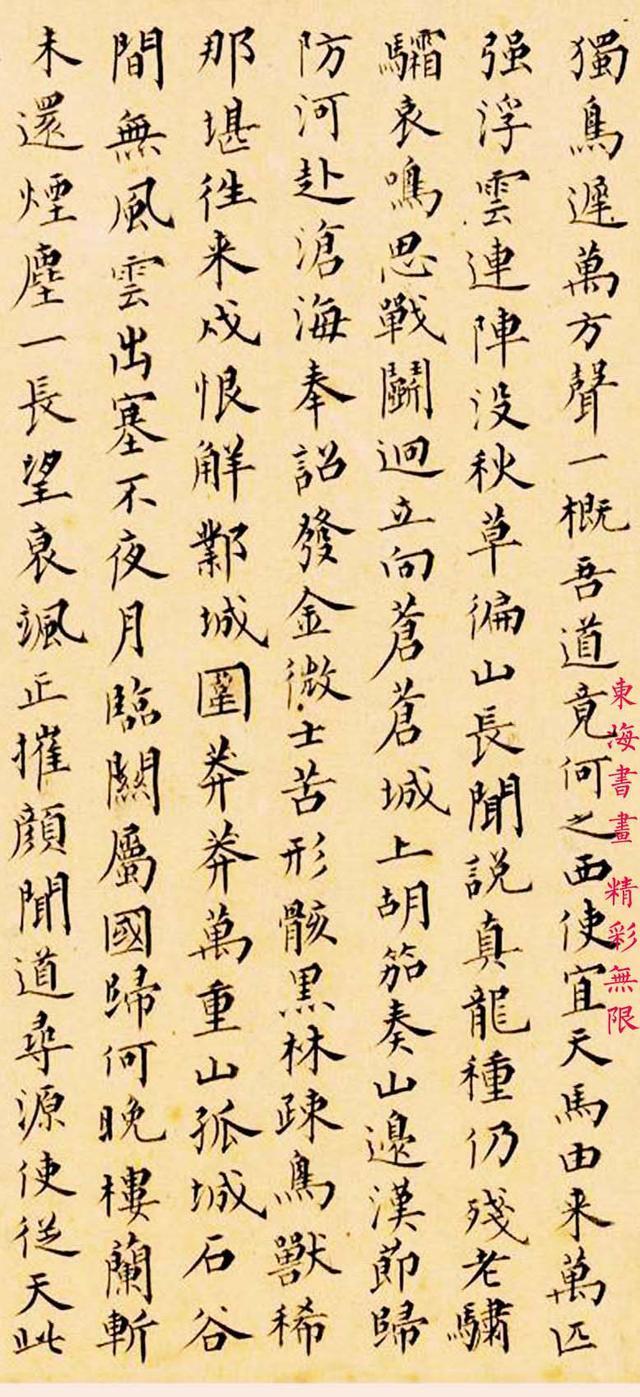 獨鳥遲萬方聲一概吾道竟何之西使宜天馬由来萬匹
强浮雲連陣没秋草徧山長聞説真龍種仍殘老驌
驦哀鳴思戰鬭迴立向蒼蒼城上胡笳奏山邊漢節歸
防河赴滄海奉詔發金微士苦形骸黑林疎鳥獸稀
那堪徃来戍恨解鄴城圍莽莽萬重山孤城石谷
間無風雲出塞不夜月臨關屬國歸何晚樓蘭斬
未還煙塵一長望衰颯正摧顔聞道尋源使從天此
東海書畫 精彩無限